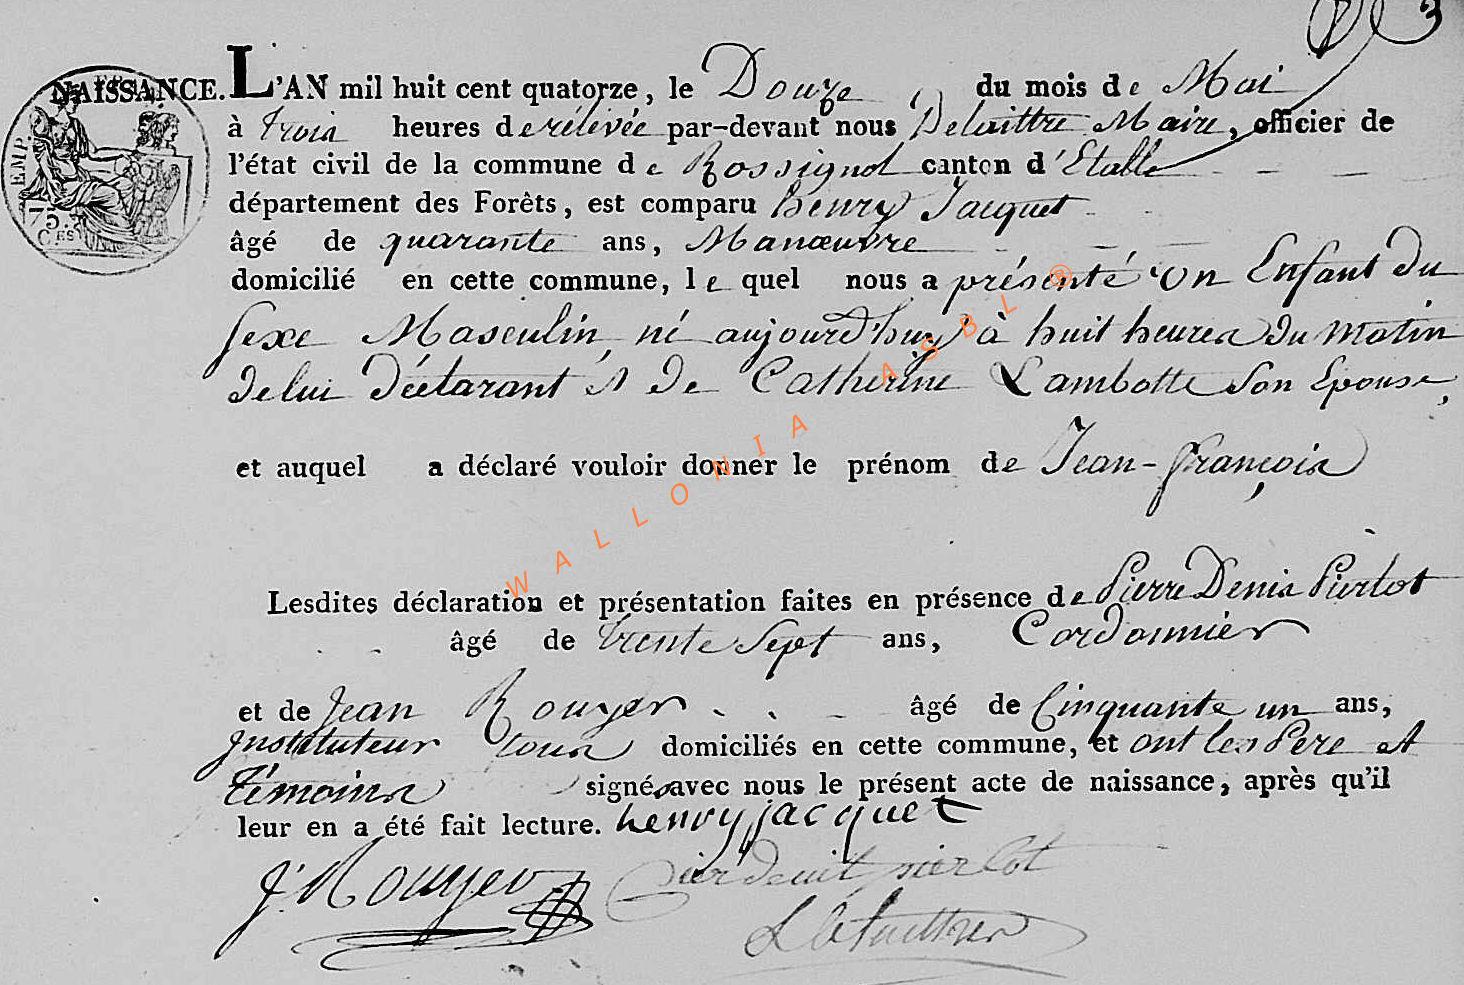 3
NAISSANCE. L'AN mil huit cent quatorze, le Douze du mois de Mai
à trois heures de rélévée par-devant nous Delaittre Maire, officier de
l'état civil de la commune de Rossignol canton d'Etalle
département des Forêts, est comparu henry Jacquet
âgé de quarante ans, Manœuvre
domicilié en cette commune, le quel nous a présenté un Enfant du
sexe Masculin, né aujourd'huy à huit heures du Matin
de lui déclarant et de Catherine Lambotte son Epouse,
et auquel a déclaré vouloir donner le prénom de Jean-françois
Lesdites déclaration et présentation faites en présence de Pierre Denis Pierlot
âgé de trente sept ans, Cordonnier
et de Jean Rouyer âgé de Cinquante un ans,
Instituteur tous domiciliés en cette commune, et ont les Pere et
témoins signés avec nous le présent acte de naissance, après qu'il
leur en a été fait lecture. henry jacquet
J. Rouyer pierlot
EMP.
75.
CES
WALLONIA ASBL ®